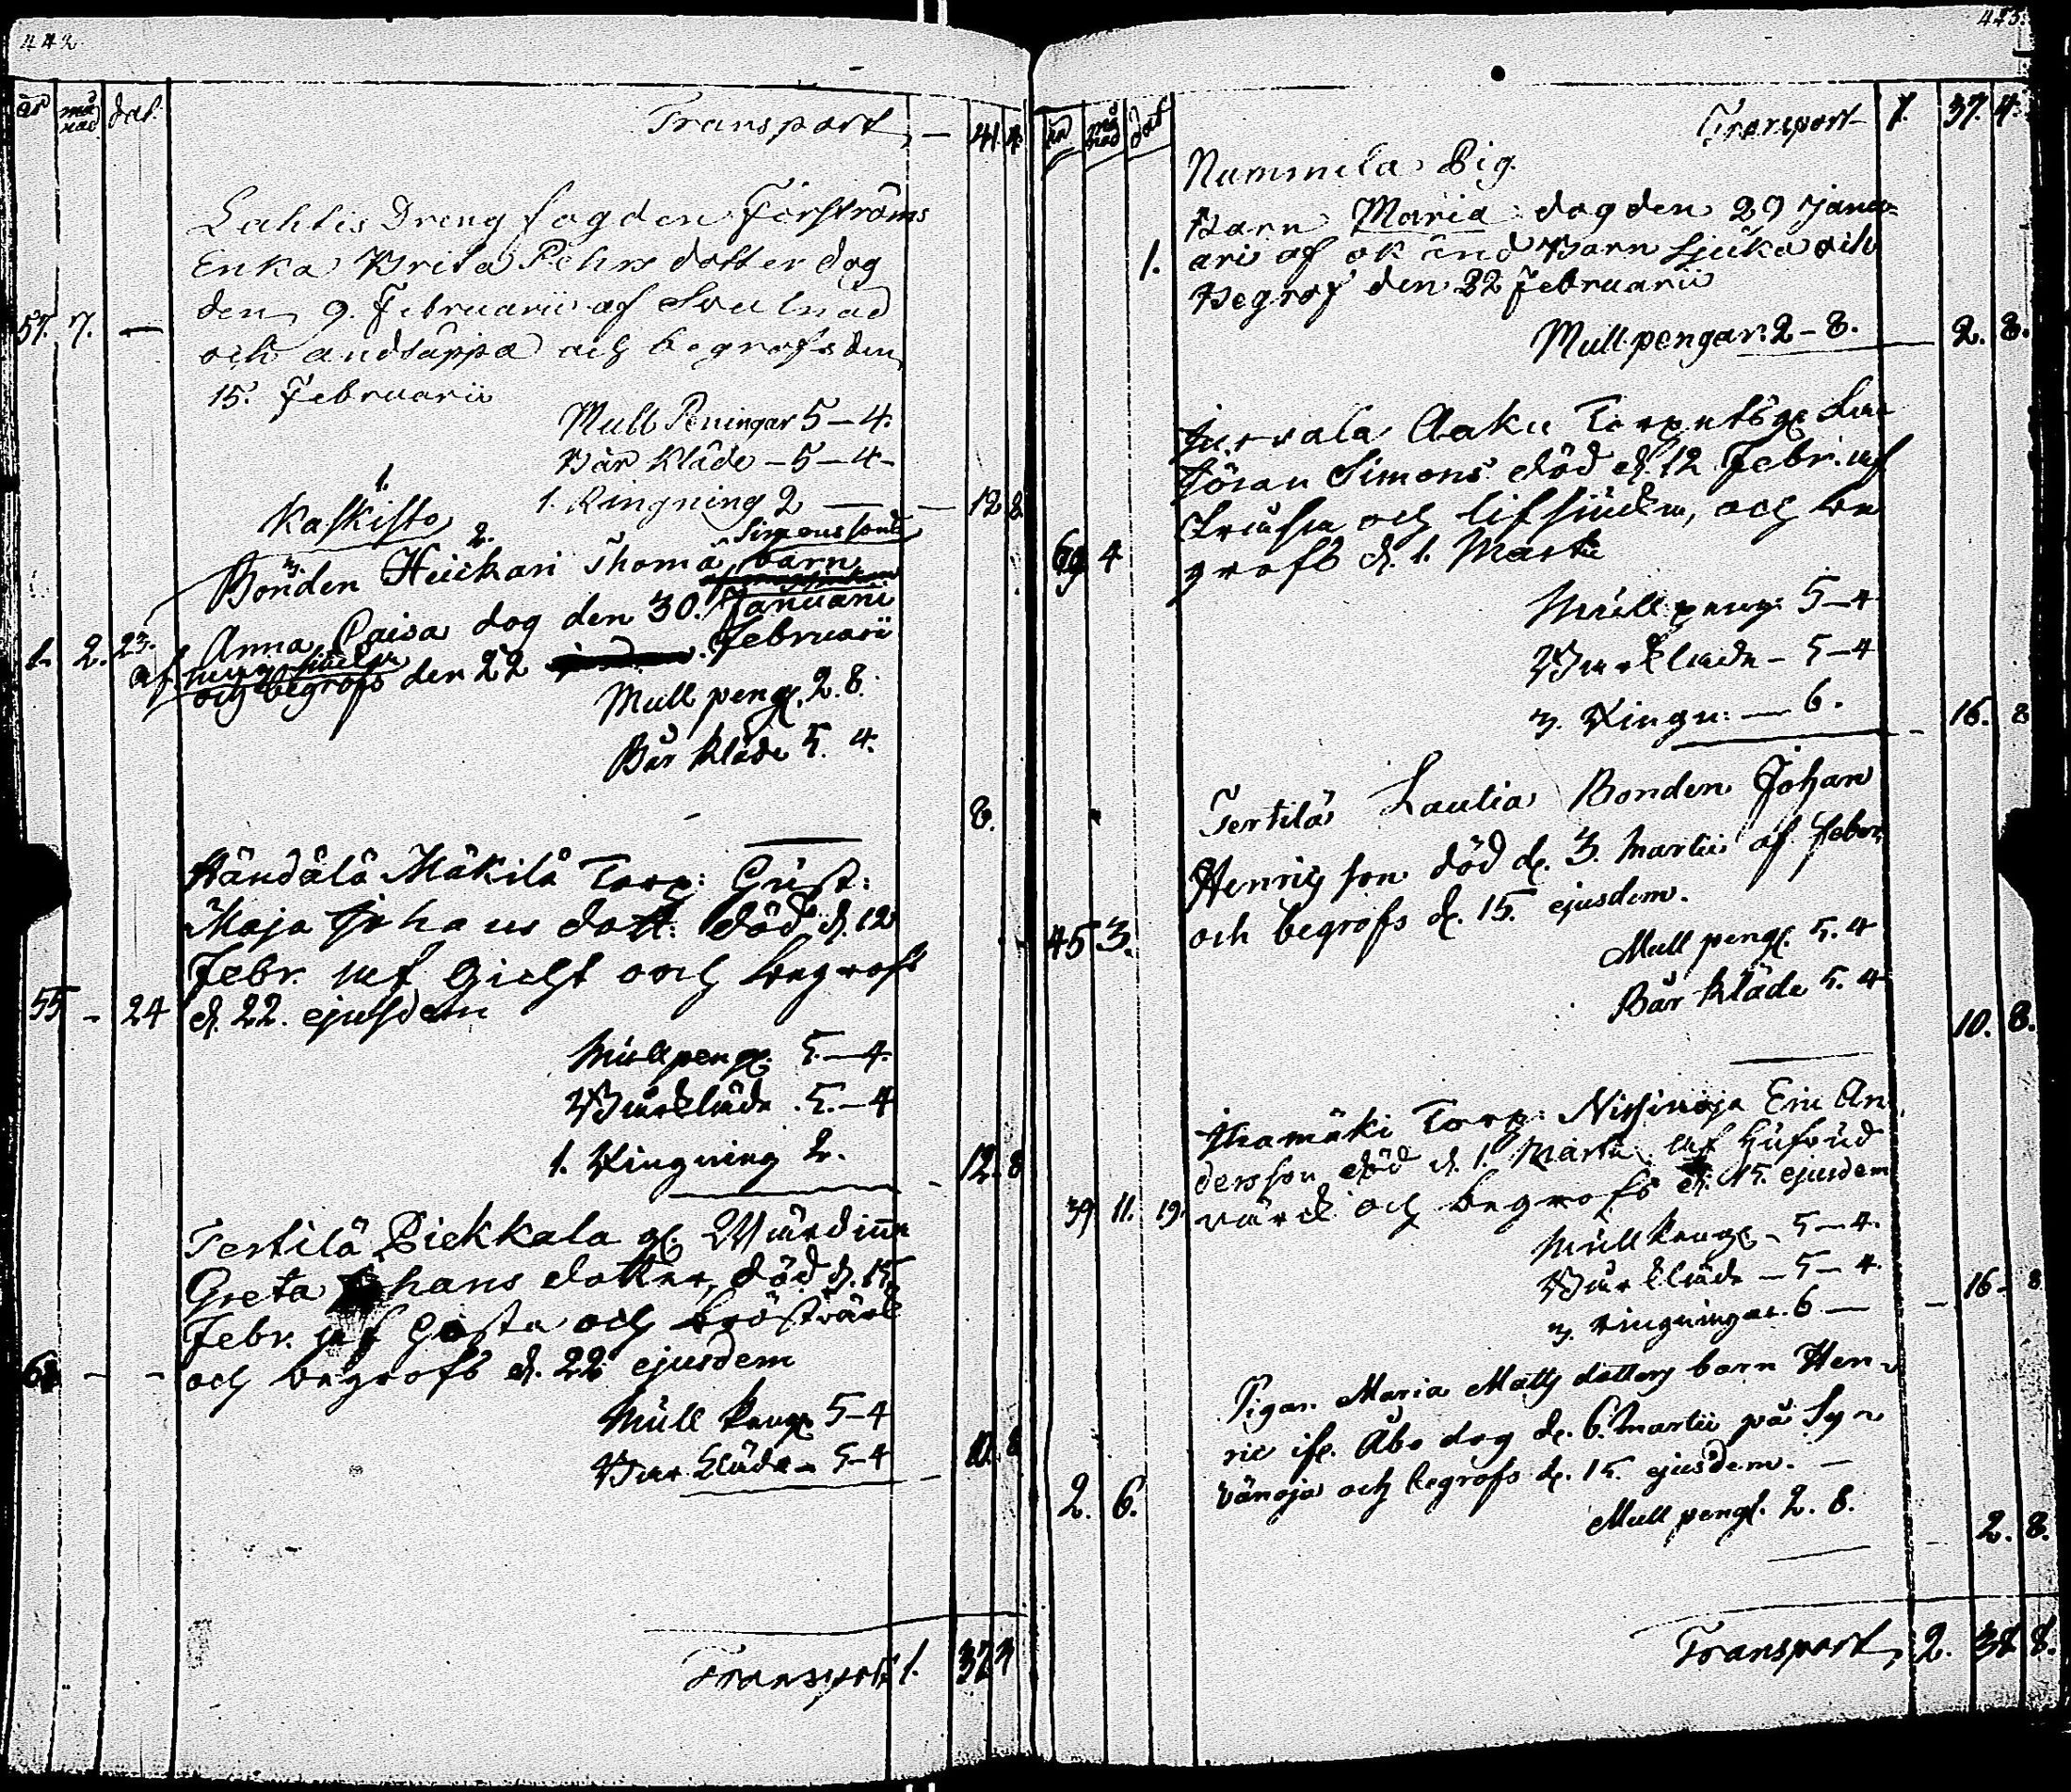 442
år månad dat.
Transport, — 41. 4.
Lahtis Dreng fogden Forströms
Enka Brita Pehrs dotter dog
den 9. Februarii af Svulnad
57. 7. —
och andtäppa och begrofs den
15. Februarii
Mull Peningar 5—4.
Bår Kläde — 5—4—
1. Ringning 2 — — 12 8.
1.
Kaskisto
2. Simons sons
3.
Bonden Heickari Thoma barn
Anna Caisa dog den 30. Januarii
1. 2. 23.
af
och begrofs den 22 Februarii
Mull peng. 2. 8.
Bår Kläde 5. 4.
8.
Händälä Mäkilä Torp: Gust:
Maja Johans dott: död d. 12
Febr. af Gicht och begrofs
55 - 24 d. 22. ejusdem
Mullpeng. 5.—4.
Bårkläde. 5.—4
1. Ringning 2. - 12. 8
Tertilä Piekkala g. Wärdinn
Greta Johans dotter, död d. 15
Febr. af Hosta och bröstvärk
- - och begrofs d. 22 ejusdem
Mull Peng. 5—4
Bår Kläde — 5—4 — 10. 8
Transport 1. 37 4
443.
år månad dat
Transport 1. 37. 4.
Nummila Pig.
Barn Maria dog den 29 Janu-
1. arii af okänd Barn Sjuka och
Begrof den 22 Februarii
Mull pengar: 2—8. 2. 8.
Jurvala Aaku Torp
Jöran Simons död d. 12 Febr. af
och lifsjukdn, och be
69 4 grofs d. 1. Martii
Mull peng: 5—4
Bårkläde — 5—4
3. Ringn: — 6. — 16. 8
Tertilä Lautia Bonden Johan
Henrics son död d. 3. Martii af feber,
45. 3. och begrofs d. 15. ejusdem.
Mull peng. 5. 4
Bår Kläde 5. 4
10. 8.
Ihamäki Torp: Nissinoja Eric An
dersson död d. 1. Martii af Hufvud
39 11. 19. värck och begrofs d. 15. ejusdem
Mull Peng. — 5—4.
Bår kläde — 5—4.
— 16— 8
3. Ringningar. 6 —
Pigan Maria Matts dotters barn Hen-
ric if. Åbo dog d. 6. Martii på Syr
2. 6. vänoja och begrofs d. 15. ejusdem. —
Mull peng. 2. 8. 2. 8.
Transport, 2. 38 8.